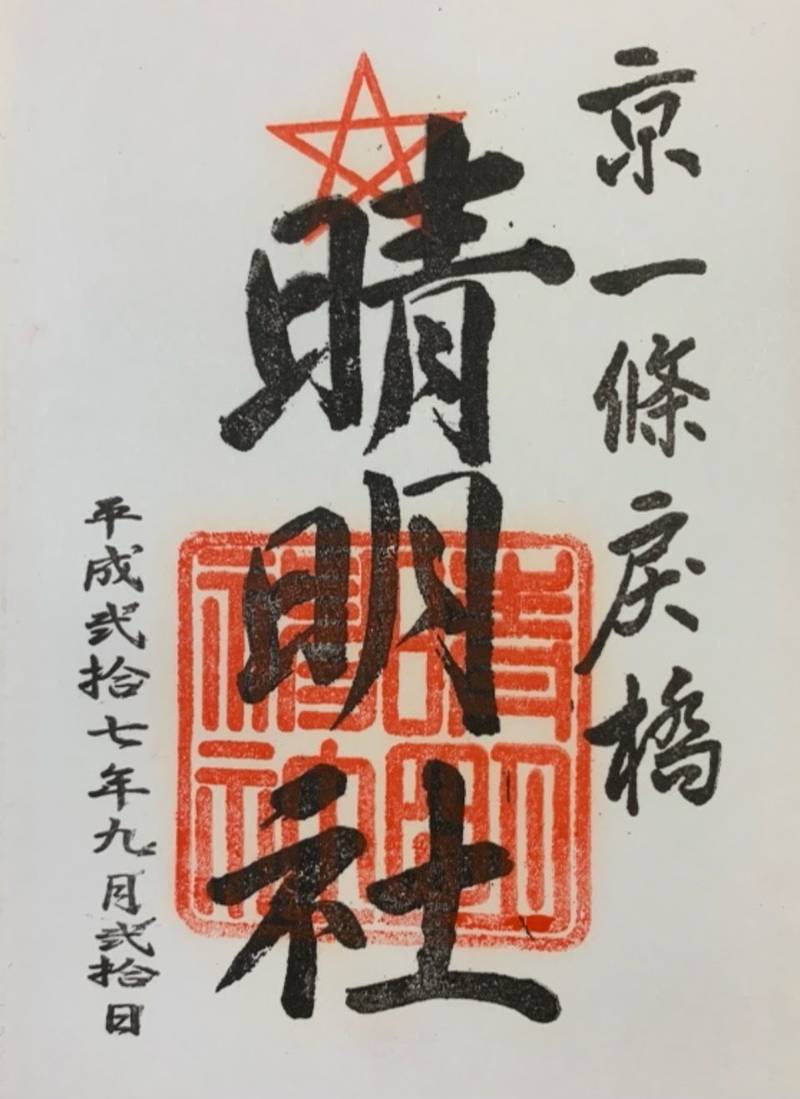 京一條戻橋
晴明社
平成弐拾七年九月弐拾日